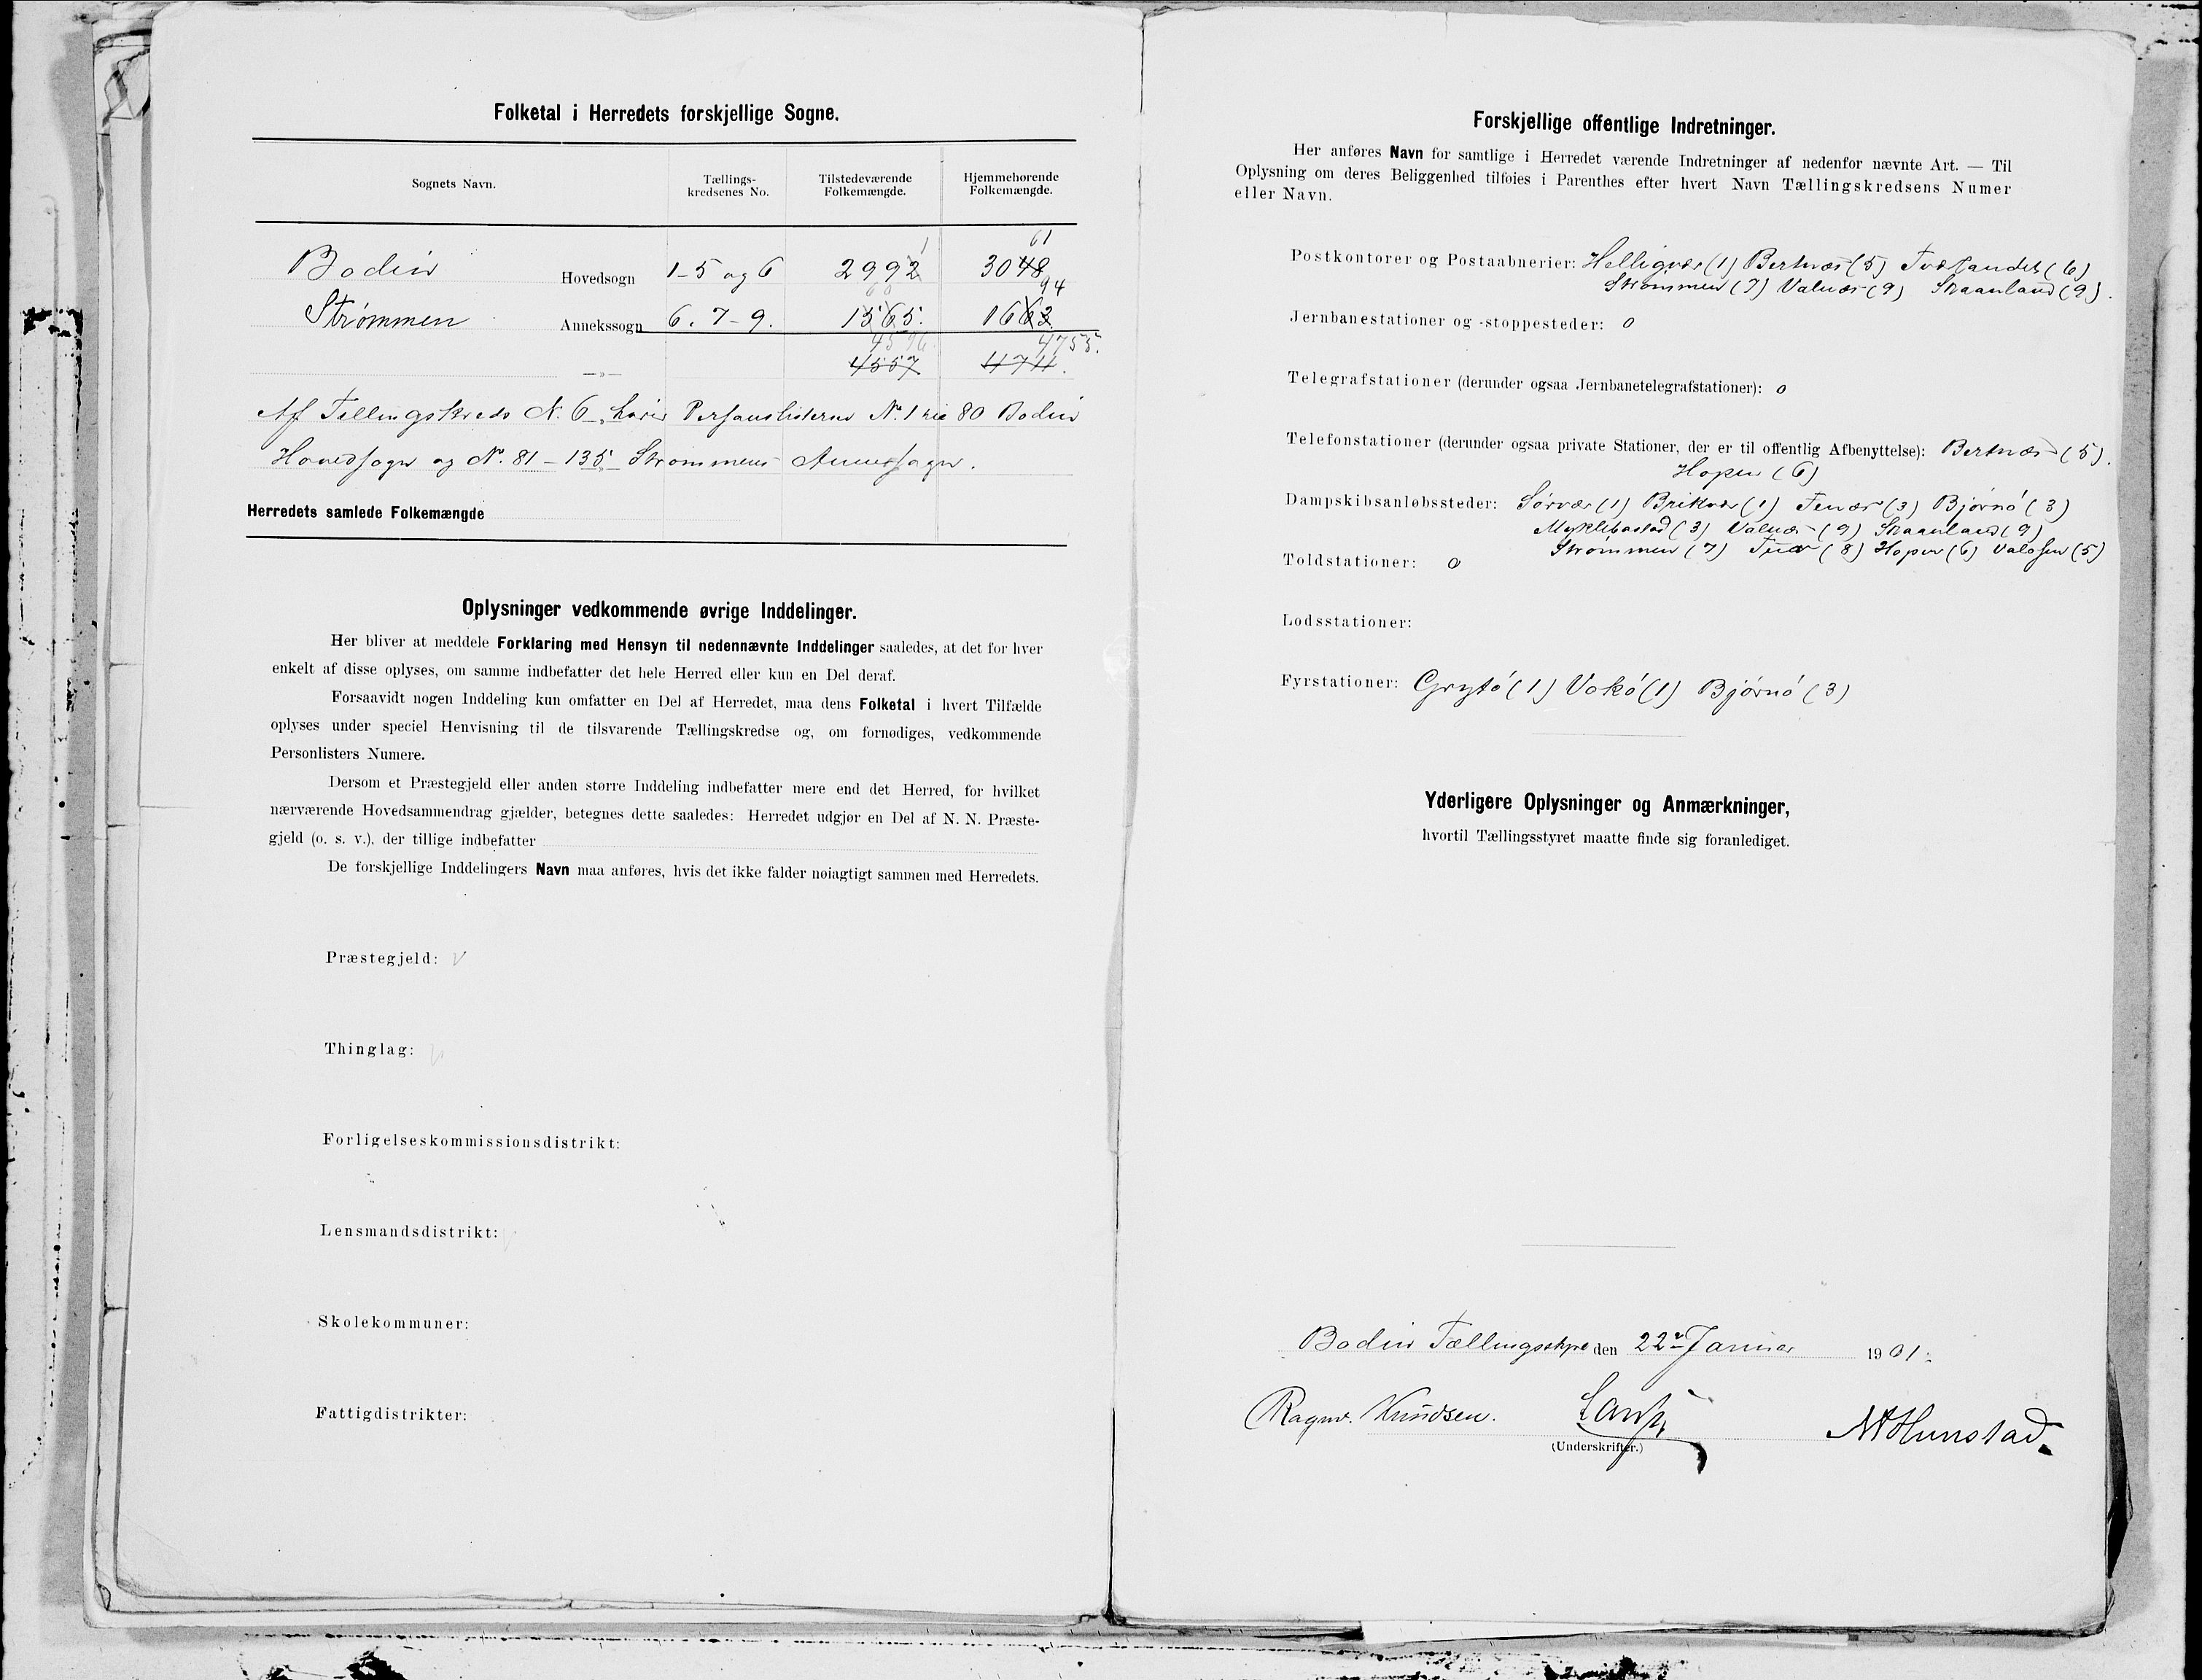 Folketal i Herredets forskjellige Sogne.
Sognets Navn. Tællings- kredsenes No. Tilstedeværende Folkemængde. Hjemmehørende Folkemængde.
1 61
Bodin Hovedsogn 1-5 og 6 2992 3048
94
Strømmen Annekssogn 6. 7-9. 1565. 1663
4755.
—„— 4557 4711.
Af Tellingskreds N. 6 hører Personlisterne No. 1 til 80 Bodin
Hovedsogn og No. 81 - 135 Strømmens Annexsogn.
Herredets samlede Folkemængde
Oplysninger vedkommende øvrige Inddelinger.
Her bliver at meddele Forklaring med Hensyn til nedennævnte Inddelinger saaledes, at det for hver
enkelt af disse oplyses, om samme indbefatter det hele Herred eller kun en Del deraf.
Forsaavidt nogen Inddeling kun omfatter en Del af Herredet, maa dens Folketal i hvert Tilfælde
oplyses under speciel Henvisning til de tilsvarende Tællingskredse og, om fornødiges, vedkommende
Personlisters Numere.
Dersom et Præstegjeld eller anden større Inddeling indbefatter mere end det Herred, for hvilket
nærværende Hovedsammendrag gjælder, betegnes dette saaledes: Herredet udgjør en Del af N. N. Præste-
gjeld (o. s. v.), der tillige indbefatter
De forskjellige Inddelingers Navn maa anføres, hvis det ikke falder nøiagtigt sammen med Herredets.
Præstegjeld:
Thinglag:
Forligelseskommissionsdistrikt:
Lensmandsdistrikt:
Skolekommuner:
Fattigdistrikter:
Forskjellige offentlige Indretninger.
Her anføres Navn for samtlige i Herredet værende Indretninger af nedenfor nævnte Art. — Til
Oplysning om deres Beliggenhed tilføies i Parenthes efter hvert Navn Tællingskredsens Numer
eller Navn.
Postkontorer og Postaabnerier: Helligvær (1) Bertnæs (5) Tværlandet (6)
Strømmen (7) Valnæs (9) Skaanland (9).
Jernbanestationer og -stoppesteder: 0
Telegrafstationer (derunder ogsaa Jernbanetelegrafstationer): 0
Telefonstationer (derunder ogsaa private Stationer, der er til offentlig Afbenyttelse): Bertnæs (5).
Hopen (6)
Dampskibsanløbsstedet: Sørvær (1) Brikvær (1) Fenær (3) Bjørnø (3)
Myklebostad (3) Valnæs (9) Skaanland (9)
Strømmen (7) Tuv (8) Hopen (6) Valosen (5)
Toldstationer: 0
Lodsstationer:
Fyrstationer: Grytø (1) Vokø (1) Bjørnø (3)
Yderligere Oplysninger og Anmærkninger,
hvortil Tællingsstyret maatte finde sig foranlediget.
Bodin Tællingsstyre den 22 Januar 1901.
Ragnv. Knudsen. M Hunstad
(Underskrifter.)